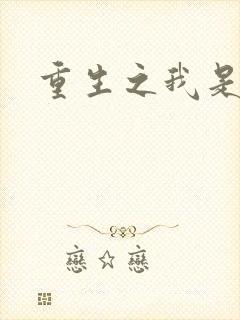 重生之我是
戀☆戀